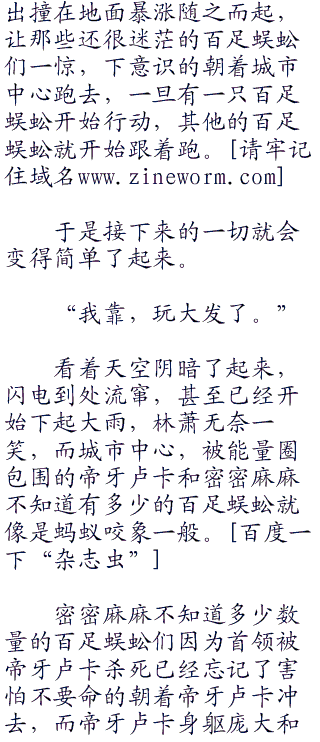 出撞在地面暴涨随之而起，
让那些还很迷茫的百足蜈蚣
们一惊，下意识的朝着城市
中心跑去，一旦有一只百足
蜈蚣开始行动，其他的百足
蜈蚣就开始跟着跑。[请牢记
住域名www.zineworm.com]
于是接下来的一切就会
变得简单了起来。
“我靠，玩大发了。”
看着天空阴暗了起来，
闪电到处流窜，甚至已经开
始下起大雨，林萧无奈一
笑，而城市中心，被能量圈
包围的帝牙卢卡和密密麻麻
不知道有多少的百足蜈蚣就
像是蚂蚁咬象一般。[百度一
下“杂志虫”]
密密麻麻不知道多少数
量的百足蜈蚣们因为首领被
帝牙卢卡杀死已经忘记了害
怕不要命的朝着帝牙卢卡冲
去，而帝牙卢卡身躯庞大和